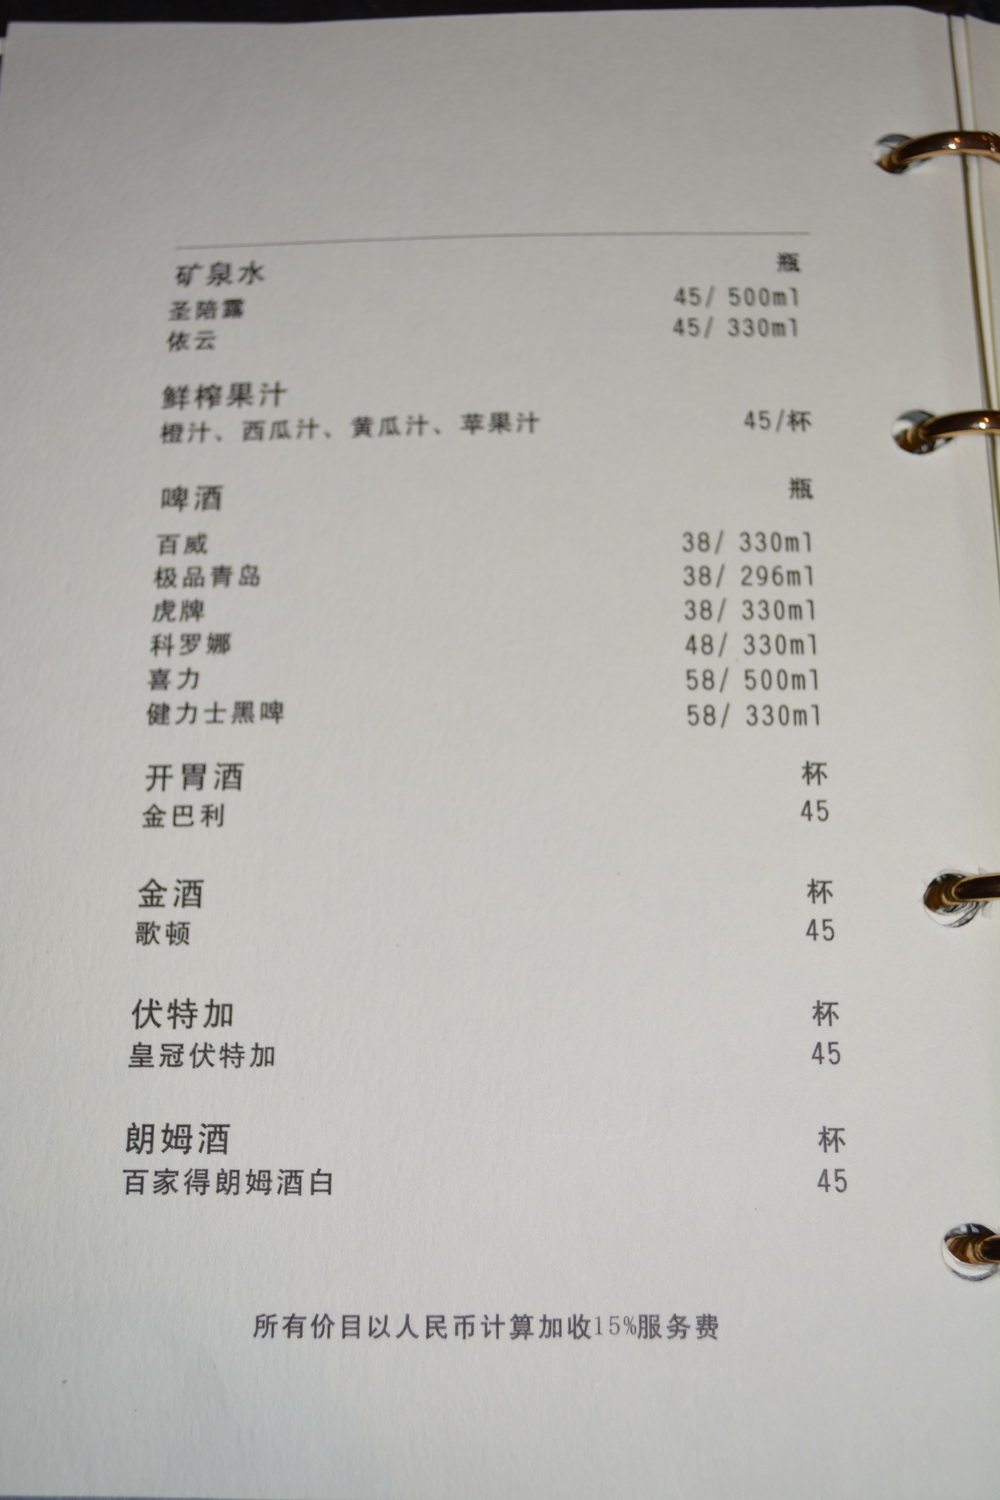 矿泉水 瓶
圣陪露 45/ 500ml
依云 45/ 330ml
鲜榨果汁
橙汁、西瓜汁、黄瓜汁、苹果汁 45/杯
啤酒 瓶
百威 38/ 330ml
极品青岛 38/ 296ml
虎牌 38/ 330ml
科罗娜 48/ 330ml
喜力 58/ 500ml
健力士黑啤 58/ 330ml
开胃酒 杯
金巴利 45
金酒 杯
歌顿 45
伏特加 杯
皇冠伏特加 45
朗姆酒 杯
百家得朗姆酒白 45
所有价目以人民币计算加收15%服务费